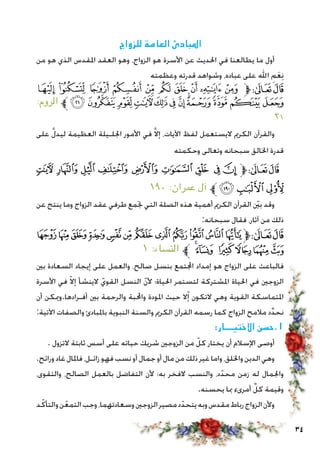 المبادئ العامة للزواج
أول ما يطالعنا في الحديث عن الأسرة هو الزواج، وهو العقد المقدس الذي هو من
نِعَم الله على عباده، وشواهد قدرته وعظمته
قَالَ تَعَالَىٰ: ﴿ وَمِنْ ءَايَـٰتِهِۦٓ أَنْ خَلَقَ لَكُم مِّنْ أَنفُسِكُمْ أَزْوَٰجًا لِّتَسْكُنُوٓا۟ إِلَيْهَا
وَجَعَلَ بَيْنَكُم مَّوَدَّةً وَرَحْمَةً إِنَّ فِى ذَٰلِكَ لَـَٔايَـٰتٍ لِّقَوْمٍ يَتَفَكَّرُونَ ﴿٢١﴾ ﴾ الروم:
٢١
والقرآن الكريم لايستعمل لفظ الآيات، إلاّ في الأمور الجليلة العظيمة ليدلّ على
قدرة الخالق سبحانه وتعالى وحكمته
قَالَ تَعَالَىٰ: ﴿ إِنَّ فِى خَلْقِ ٱلسَّمَـٰوَٰتِ وَٱلْأَرْضِ وَٱخْتِلَـٰفِ ٱلَّيْلِ وَٱلنَّهَارِ لَـَٔايَـٰتٍ
لِّأُو۟لِى ٱلْأَلْبَـٰبِ ﴿١٩٠﴾ ﴾ آل عمران: ١٩٠
وقد بيّن القرآن الكريم أهمية هذه الصلة التي تجمع طرفي عقد الزواج وما ينتج عن
ذلك من آثار، فقال سبحانه:
قَالَ تَعَالَىٰ: ﴿ يَـٰٓأَيُّهَا ٱلنَّاسُ ٱتَّقُوا۟ رَبَّكُمُ ٱلَّذِى خَلَقَكُم مِّن نَّفْسٍ وَٰحِدَةٍ وَخَلَقَ مِنْهَا زَوْجَهَا
وَبَثَّ مِنْهُمَا رِجَالًا كَثِيرًا وَنِسَآءً ﴾ النساء: ١
فالباعث على الزواج هو إمداد المجتمع بنسل صالح، والعمل على إيجاد السعادة بين
الزوجين في الحياة المشتركة لتستمر الحياة: لأنّ النسل القويّ لاينشأ إلاّ في الأسرة
المتماسكة القوية وهي لاتكون إلاّ حيث المودة والمحبة والرحمة بين أفرادها.ويكن أن
نحدّد ملامح الزواج كما رسمه القرآن الكريم والسنة النبوية بالمبادئ والصفات الآتية:
١.حسن الاختيار:
أوصى الإسلام أن يختار كلّ من الزوجين شريك حياته على أسس ثابتة لاتزول .
وهي الدين والخلق، واما غير ذلك من مال أو جمال أو نسب فهو زائل، فالمال غاد ورائح،
والجمال له زمن محدّد، والنسب لافخر به: لأن التفاضل بالعمل الصالح، والتقوى،
وقيمة كلّ أمرىء بما يحسنه.
ولأن الزواج رباط مقدس وبه يتحدّد مصير الزوجين وسعادتهما، وجب التمعّن والتأكّد
٣٤